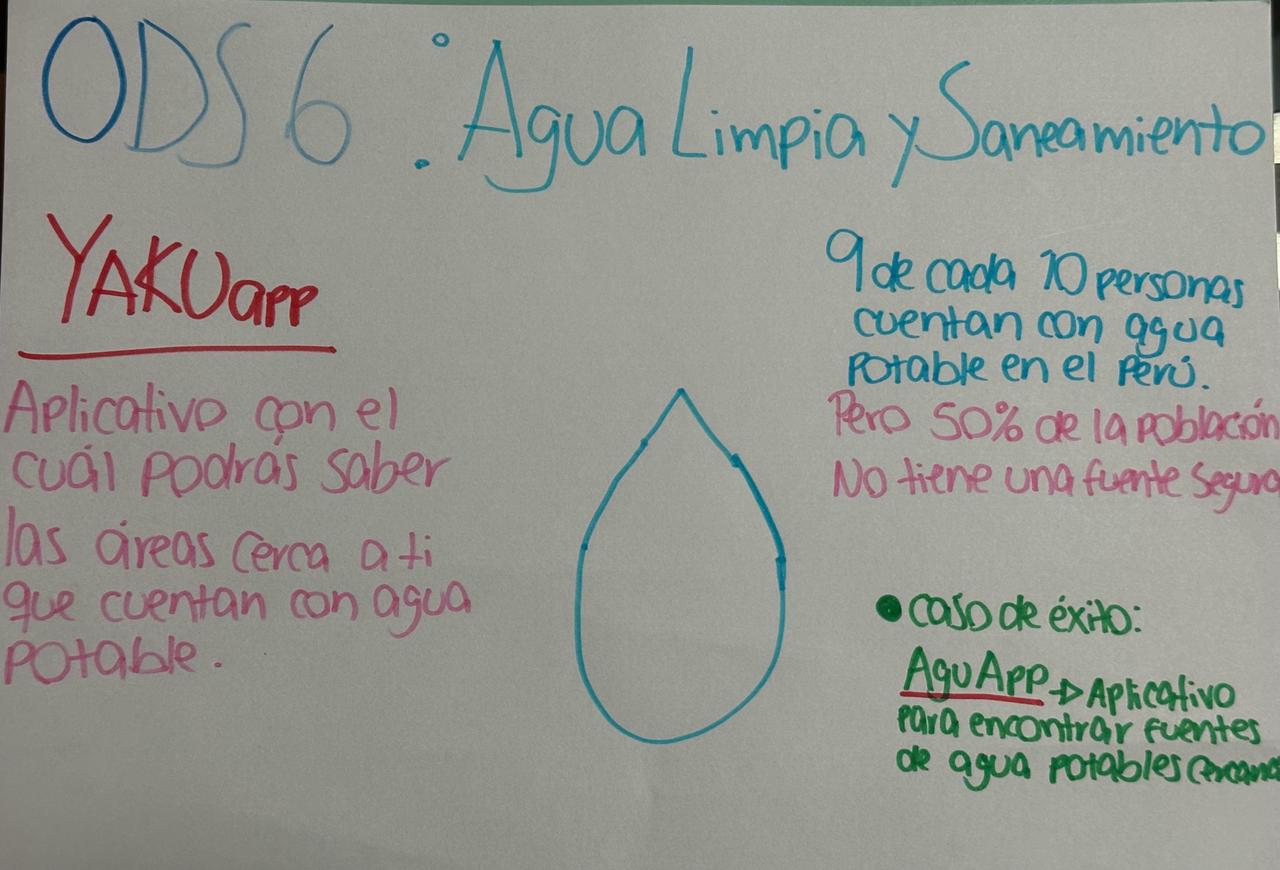 ODS 6 : Agua Limpia y Saneamiento
YAKUapp
Aplicativo con el
cuál podrás saber
las áreas cerca a ti
que cuentan con agua
potable.
9 de cada 10 personas
cuentan con agua
potable en el Perú.
Pero 50% de la población
No tiene una fuente segura
• caso de éxito:
AguApp → Aplicativo
para encontrar fuentes
de agua potables cercanas